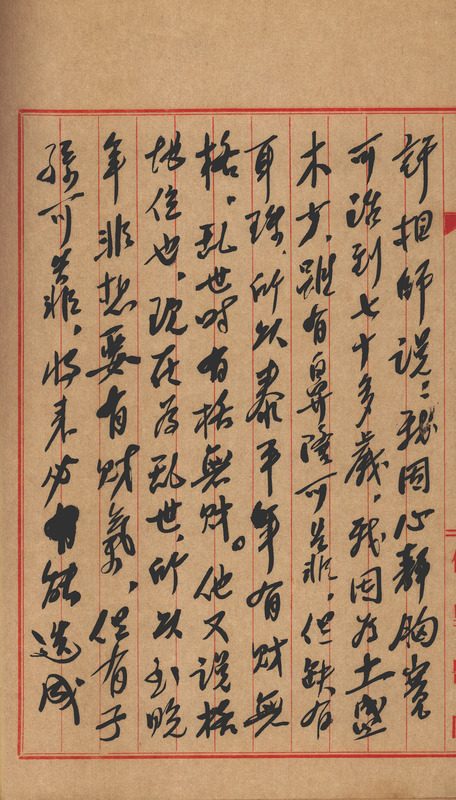 許相師說：我因心靜胸寬
可活到七十多歲，我因為土盛
木少，雖有鼻隆可是非，但缺有
耳珠，所以泰平年有財無
格，亂世時有格無財。他又說格
地位也，現在為亂世，所以到晚
年非想要有財氣，但有子
孫可是非，將來必有能造成